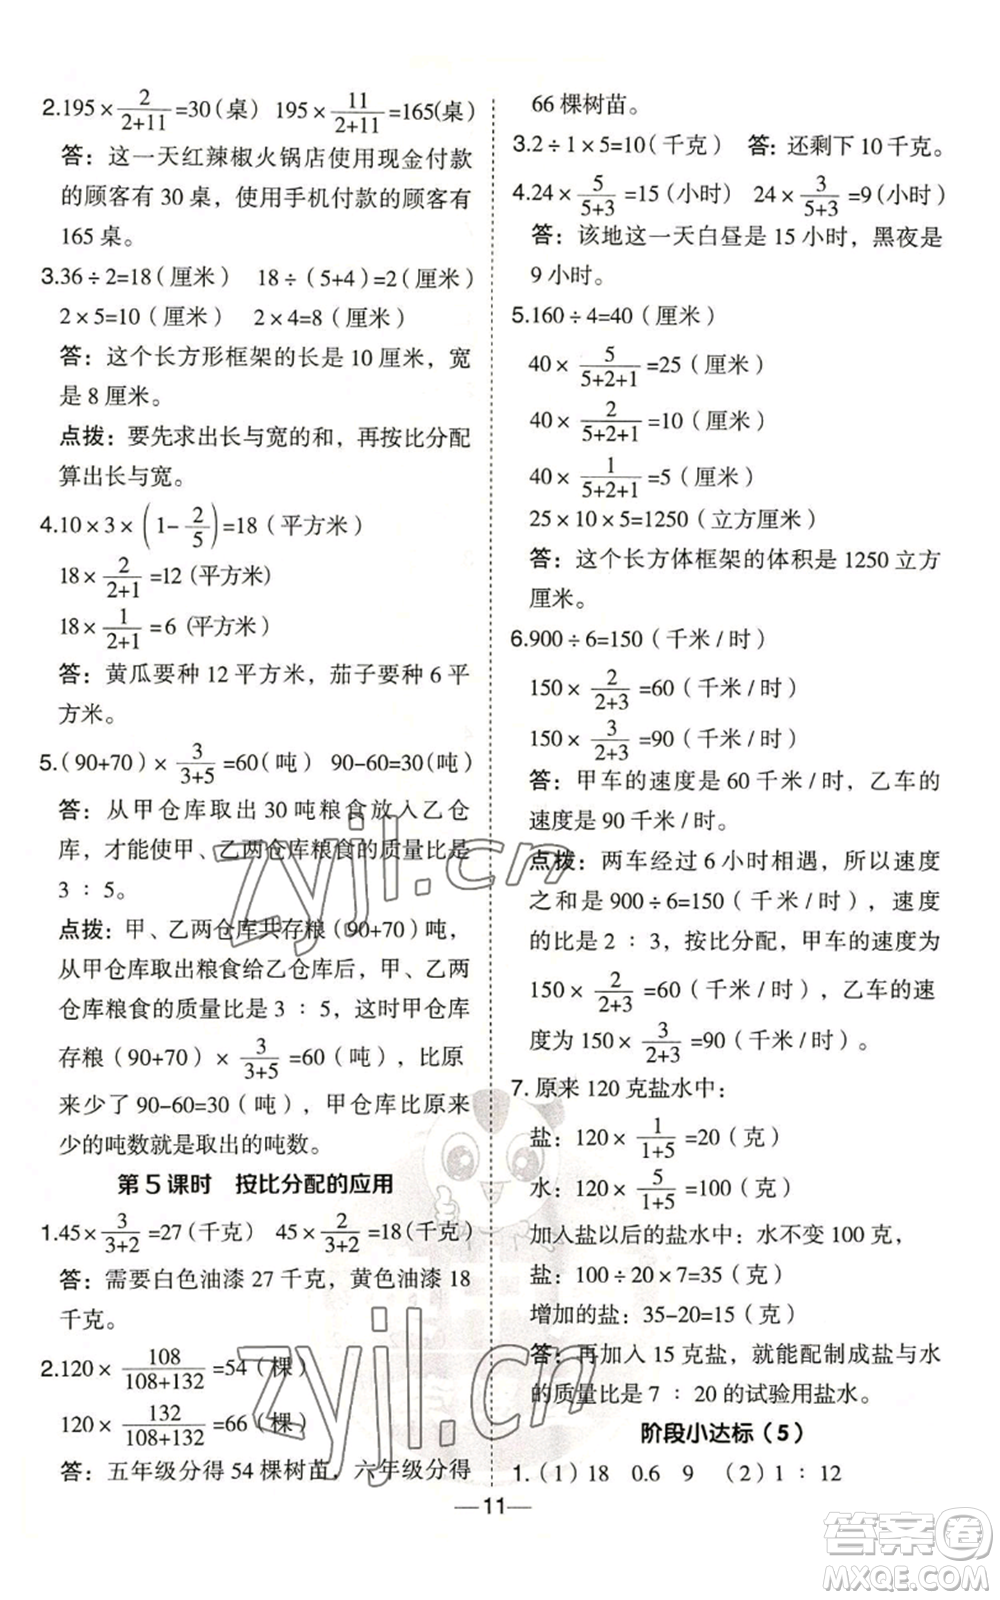 2.195×2/(2+11)=30(桌)　195×11/(2+11)=165(桌)
答：这一天红辣椒火锅店使用现金付款
的顾客有 30 桌，使用手机付款的顾客有
165 桌。
3.36÷2=18(厘米)　18÷(5+4)=2(厘米)
2×5=10(厘米)　2×4=8(厘米)
答：这个长方形框架的长是 10 厘米，宽
是 8 厘米。
点拨：要先求出长与宽的和，再按比分配
算出长与宽。
4.10×3×(1-2/5)=18(平方米)
18×2/(2+1)=12(平方米)
18×1/(2+1)=6(平方米)
答：黄瓜要种 12 平方米，茄子要种 6 平
方米。
5.(90+70)×3/(3+5)=60(吨)　90-60=30(吨)
答：从甲仓库取出 30 吨粮食放入乙仓
库，才能使甲、乙两仓库粮食的质量比是
3∶5。
点拨：甲、乙两仓库共存粮(90+70)吨，
从甲仓库取出粮食给乙仓库后，甲、乙两
仓库粮食的质量比是 3∶5，这时甲仓库
存粮(90+70)×3/(3+5)=60(吨)，比原
来少了 90-60=30(吨)，甲仓库比原来
少的吨数就是取出的吨数。
第 5 课时　按比分配的应用
1.45×3/(3+2)=27(千克)　45×2/(3+2)=18(千克)
答：需要白色油漆 27 千克，黄色油漆 18
千克。
2.120×108/(108+132)=54(棵)
120×132/(108+132)=66(棵)
答：五年级分得 54 棵树苗，六年级分得
66 棵树苗。
3.2÷1×5=10(千克)　答：还剩下 10 千克。
4.24×5/(5+3)=15(小时)　24×3/(5+3)=9(小时)
答：该地这一天白昼是 15 小时，黑夜是
9 小时。
5.160÷4=40(厘米)
40×5/(5+2+1)=25(厘米)
40×2/(5+2+1)=10(厘米)
40×1/(5+2+1)=5(厘米)
25×10×5=1250(立方厘米)
答：这个长方体框架的体积是 1250 立方
厘米。
6.900÷6=150(千米/时)
150×2/(2+3)=60(千米/时)
150×3/(2+3)=90(千米/时)
答：甲车的速度是 60 千米/时，乙车的
速度是 90 千米/时。
点拨：两车经过 6 小时相遇，所以速度
之和是 900÷6=150(千米/时)，速度
的比是 2∶3，按比分配，甲车的速度为
150×2/(2+3)=60(千米/时)，乙车的速
度为 150×3/(2+3)=90(千米/时)。
7.原来 120 克盐水中：
盐：120×1/(1+5)=20(克)
水：120×5/(1+5)=100(克)
加入盐以后的盐水中：水不变 100 克，
盐：100÷20×7=35(克)
增加的盐：35-20=15(克)
答：再加入 15 克盐，就能配制成盐与水
的质量比是 7∶20 的试验用盐水。
阶段小达标(5)
1.(1)18　0.6　9　(2)1∶12
—11—
zyjl.cn
zyjl.cn
答案圈
MXQE.COM